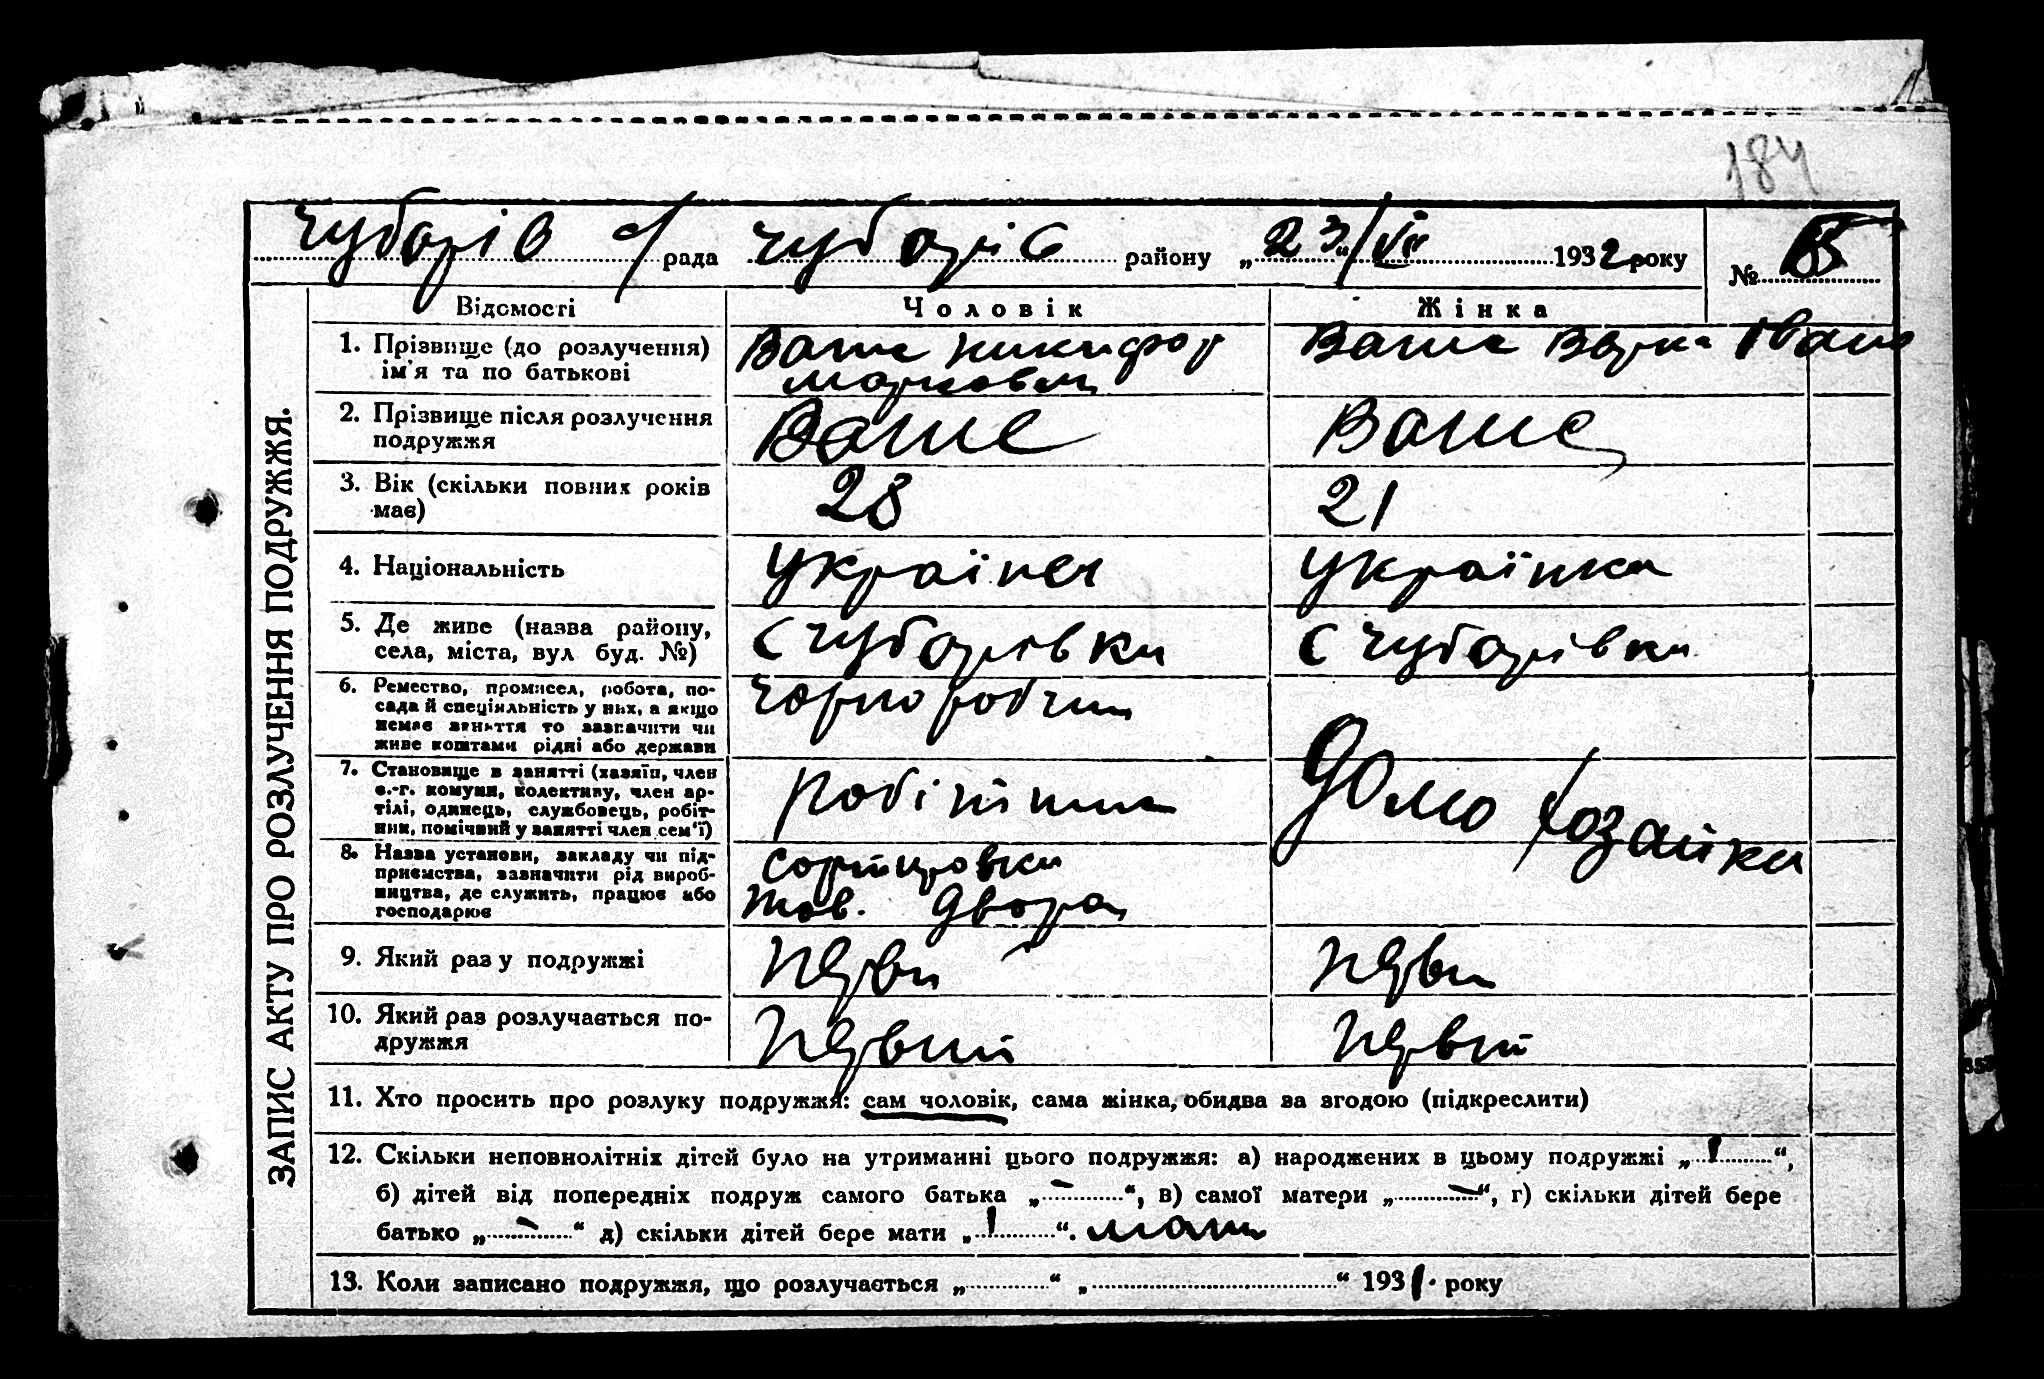 184
Чубарів с/рада Чубарів району „23“/VII 1932 року № 15
ЗАПИС АКТУ ПРО РОЗЛУЧЕННЯ ПОДРУЖЖЯ.
Відомості Чоловік Жінка
1. Прізвище (до розлучення) ім'я та по батькові
Ваше Никифор
Маркович
Ваше Варка Іван
2. Прізвище після розлучення подружжя
Ваше
Ваше
3. Вік (скільки повних років має)
28
21
4. Національність
українец
українка
5. Де живе (назва району, села, міста, вул буд. №)
с Чубарівки
с Чубарівки
6. Ремество, промисел, робота, посада й спеціяльність у них, а якщо немає заняття то зазначити чи живе коштами рідні або держави
чорноробчий
7. Становище в занятті (хазяїн, член с.-г. комуни, колективу, член артілі, одинець, службовець, робітник, помічний у занятті член сем'ї)
робітник
домохозайка
8. Назва установи, закладу чи підприємства, зазначити рід виробництва, де служить, працює або господарює
сортіровки
тов. двора
9. Який раз у подружжі
перви
перви
10. Який раз розлучається подружжя
первий
первий
11. Хто просить про розлуку подружжя: сам чоловік, сама жінка, обидва за згодою (підкреслити)
12. Скільки неповнолітніх дітей було на утриманні цього подружжя: а) народжених в цьому подружжі „1“,
б) дітей від попередніх подруж самого батька „-“, в) самої матери „-“, г) скільки дітей бере
батько „-“ д) скільки дітей бере мати „1“. мати
13. Коли записано подружжя, що розлучається „ “ „ “ 1931. року